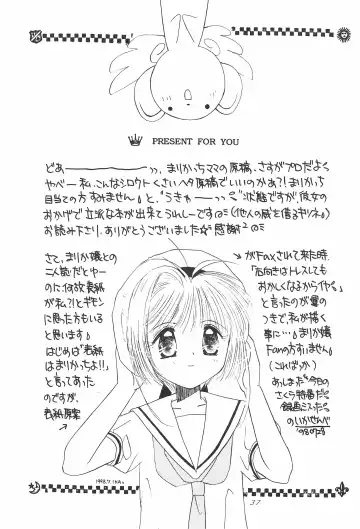 PRESENT FOR YOU
どあーーーっっ、まりかっちママの原稿、さすがプロだよ
ヤベー私、こんなシロウトくさいヘタ原稿でいいのかぁ?!まりかっち
目当ての方すみません♪と、"うきゃーっっ"状態ですが彼女の
おかげで立派な本が出来てうれしーです(他人の威を借るキツネ)
お読み下さり、ありがとうございました☆感謝
さて、まりか嬢との
二人誌だとゆー
のに何故表紙
が私?!とギモンに
思った方もいる
と思います♪
はじめは「表紙
はまりかっちよ!!」
と言ってあった
のですが、
表紙原案
がFaxされて来た時、
「右向きはトレスしても
おかしくなるからイヤ」
と言ったのが運の
つきで、私が描く
事に…♪まりか嬢
Fanの方すいません
(こればっか)
あ、しまった"今日の
さくら特番だ"
録画ミスった"
のいかせんべ
'98 07/28
1998.7 IKA.
37